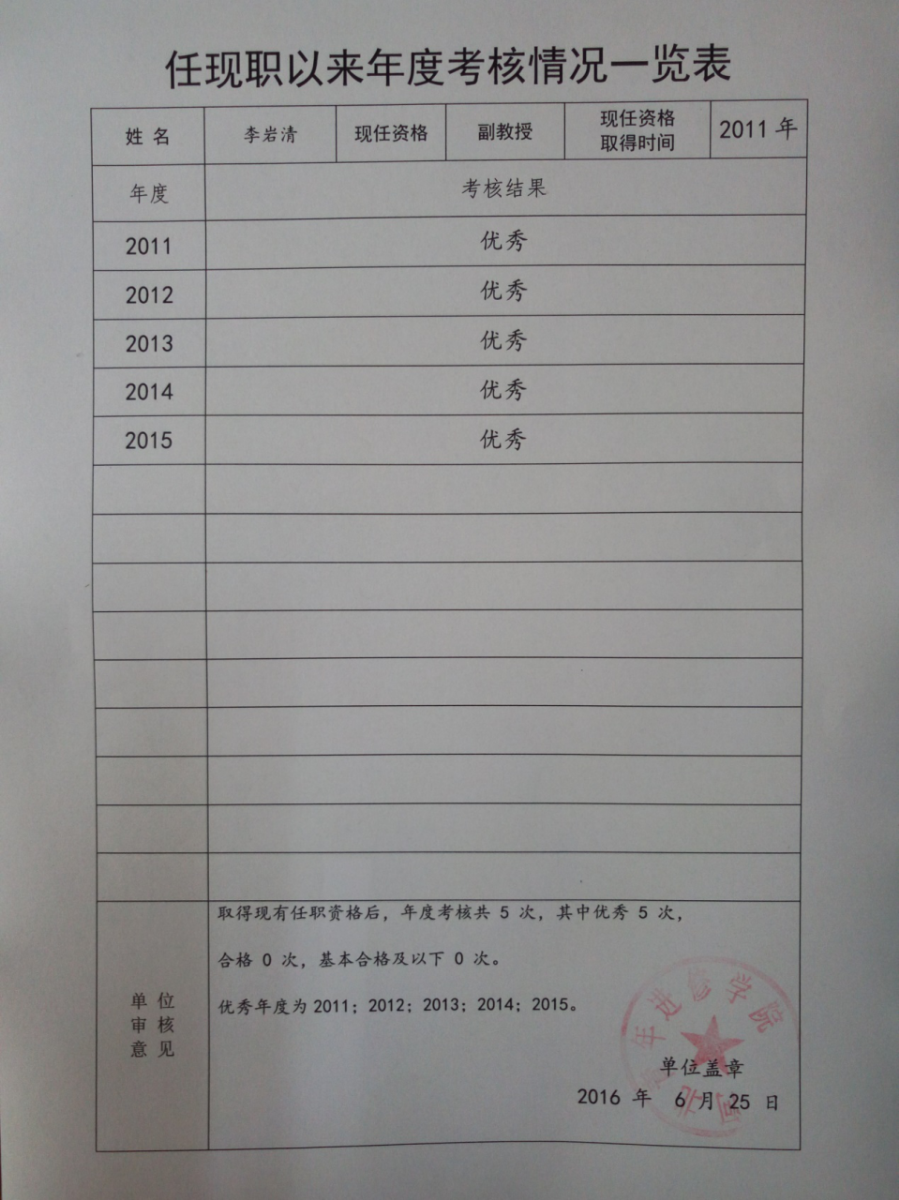 任现职以来年度考核情况一览表
姓 名 李岩清 现任资格 副教授 现任资格 取得时间 2011 年
年度 考核结果
2011 优秀
2012 优秀
2013 优秀
2014 优秀
2015 优秀
取得现有任职资格后，年度考核共 5 次，其中优秀 5 次，
合格 0 次，基本合格及以下 0 次。
优秀年度为2011；2012；2013；2014；2015。
单 位
审 核
意 见
单位盖章
2016 年 6 月 25 日
河北青年进修学院